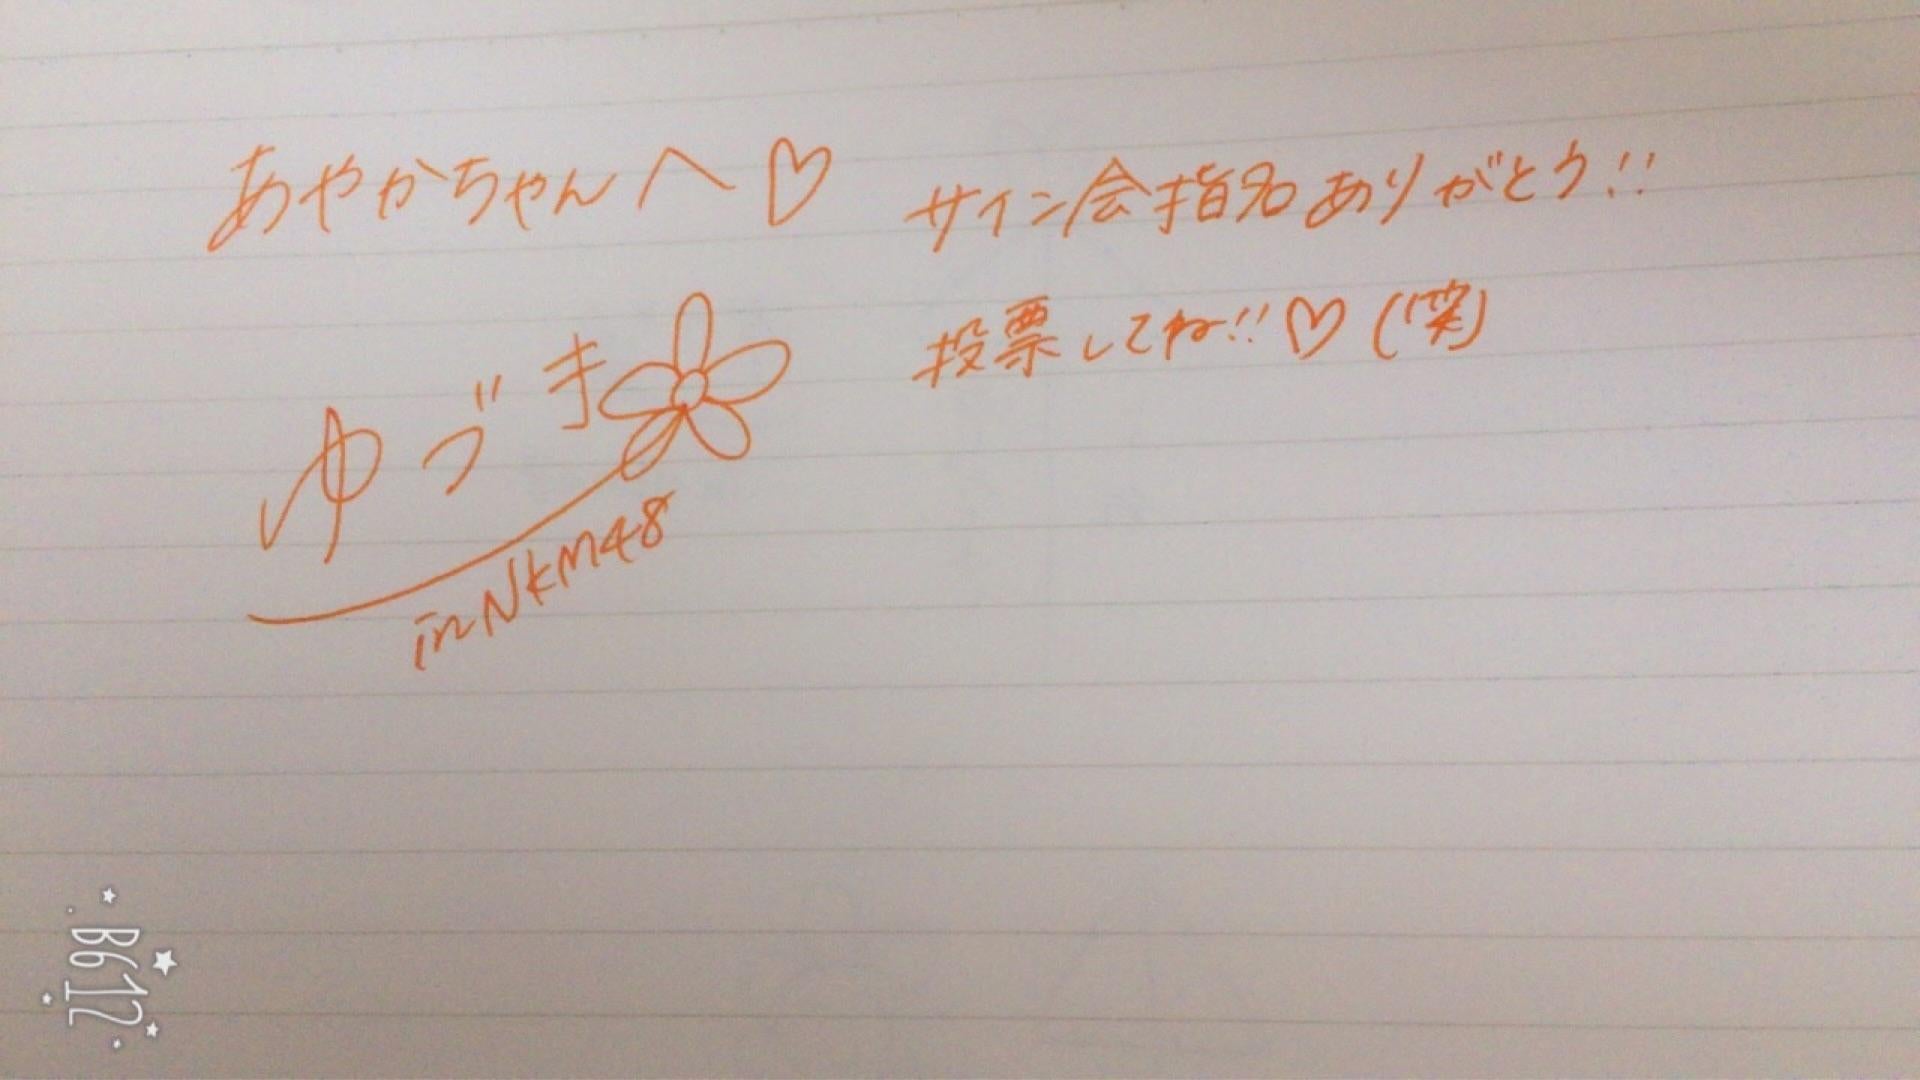 あやかちゃんへ♡
サイン会指名ありがとう!!
投票してね!!♡(笑)
ゆづき
in NKM48
B612